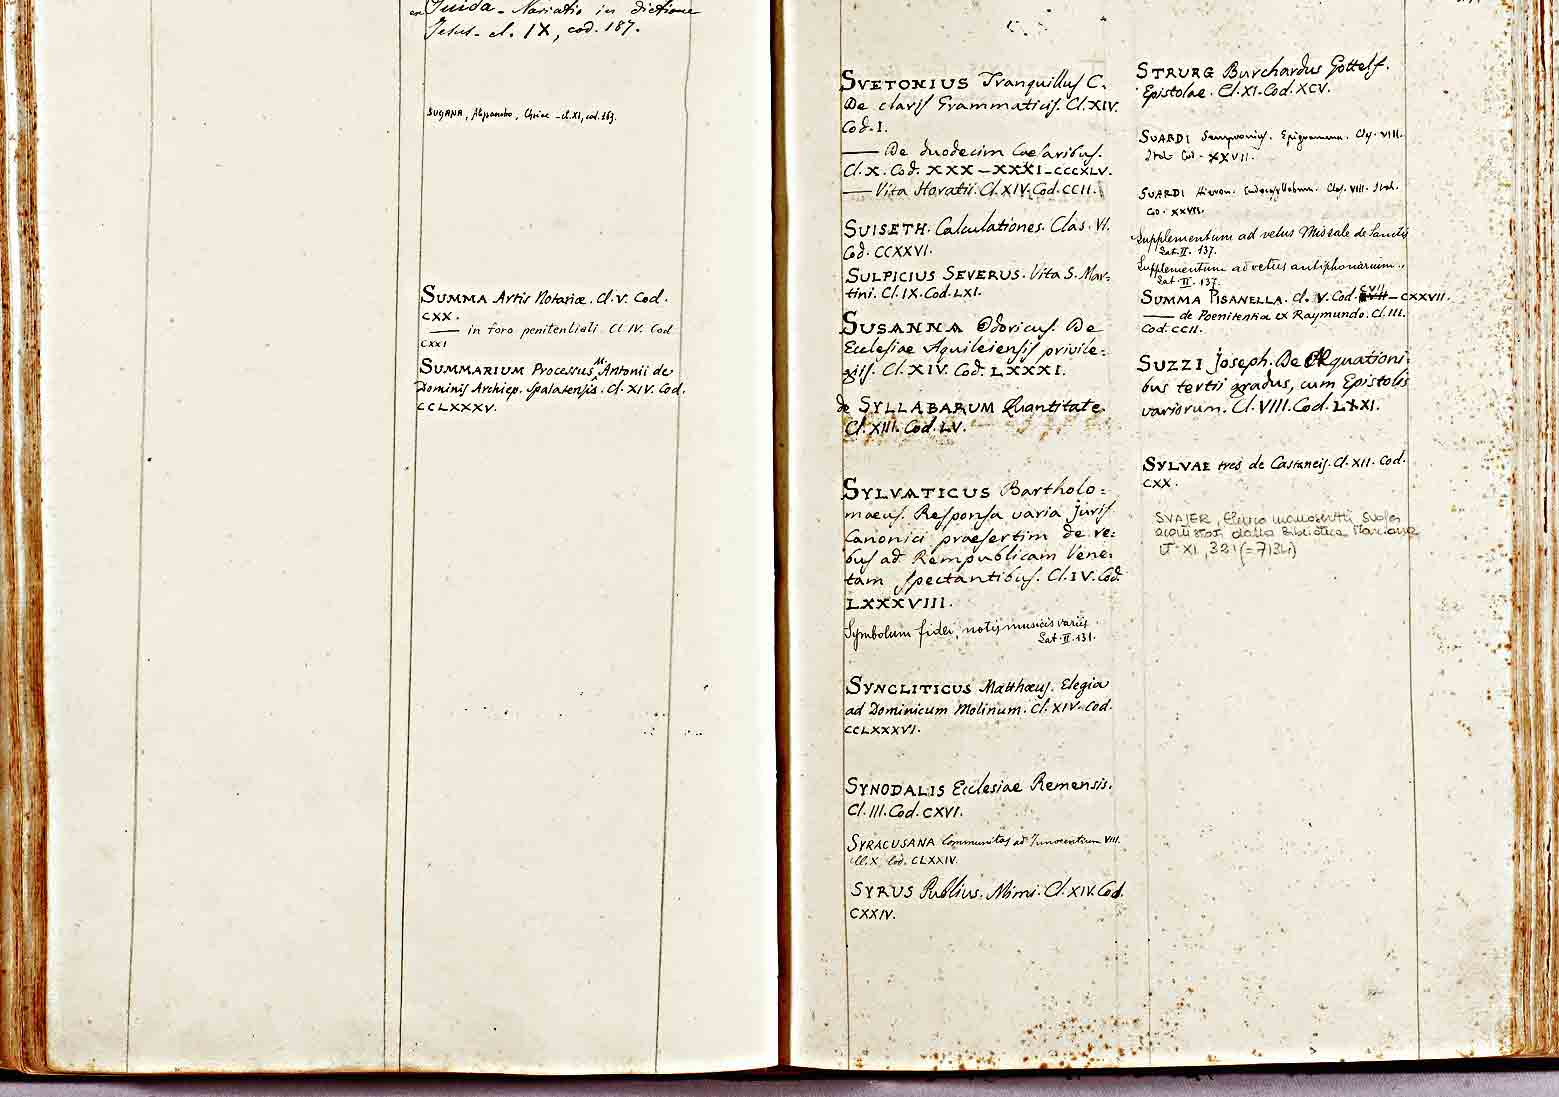 Suida - Narratio in dictione
Jesus - cl. IX, cod. 187.
SUGANA, Alessandro, Chiae - cl. XI, cod. 163.
SUMMA Artis Notariæ. Cl. V. Cod.
CXX.
—— in foro penitentiali. Cl. IV. Cod
CXXI
SUMMARIUM Processus M. Antonii de
Dominis Archiep. Spalatensis. Cl. XIV. Cod.
CCLXXXV.
SVETONIUS Tranquillus C.
De claris Grammaticis. Cl. XIV.
Cod. I.
—— De duodecim Caesaribus.
Cl. X. Cod. XXX - XXXI - CCCXLV.
—— Vita Horatii. Cl. XIV. Cod. CCII.
SUISETH. Calculationes. Clas. VI.
Cod. CCXXVI.
SULPICIUS SEVERUS. Vita S. Mar=
tini. Cl. IX. Cod. LXI.
SUSANNA Odoricus. De
Ecclesiae Aquileiensis privile=
giis. Cl. XIV. Cod. LXXXI.
de SYLLABARUM Quantitate.
Cl. XIII. Cod. LV.
SYLVATICUS Bartholo=
maeus. Responsa varia juris
Canonici praesertim de re=
bus ad Rempublicam Vene=
tam spectantibus. Cl. IV. Cod.
LXXXVIII.
Symbolum fidei, notis musicis variis.
Lat. II. 131.
SYNCLITICUS Matthæus. Elegia
ad Dominicum Molinum. Cl. XIV. Cod.
CCLXXXVI.
SYNODALIS Ecclesiae Remensis.
Cl. III. Cod. CXVI.
SYRACUSANA Communitas ad Innocentium VIII.
Cl. X. Cod. CLXXIV.
SYRUS Publius. Mimi. Cl. XIV. Cod.
CXXIV.
STRURG Burchardus Gottelf.
Epistolae. Cl. XI. Cod. XCV.
SUARDI Sempronius. Epigramma. Clas. VIII.
Ital. Cod. XXVII.
SUARDI Hieron. Endecasyllabum. Clas. VIII. Ital.
Co. XXVII.
Supplementum ad vetus Missale de Sanctis
Lat. II. 137.
Supplementum ad vetus antiphonarium.
Lat. II. 137.
SUMMA PISANELLA. Cl. V. Cod. CVII - CXXVII.
—— de Poenitentia ex Raymundo. Cl. III.
Cod. CCII.
SUZZI Joseph. De Æquationi=
bus tertii gradus, cum Epistolis
variorum. Cl. VIII. Cod. LXXI.
SYLVAE tres de Castaneis. Cl. XII. Cod.
CXX.
SVAJER, Elenco manoscritti Svajer
acquistati dalla Biblioteca Marciana
It. XI, 321 (=7134)